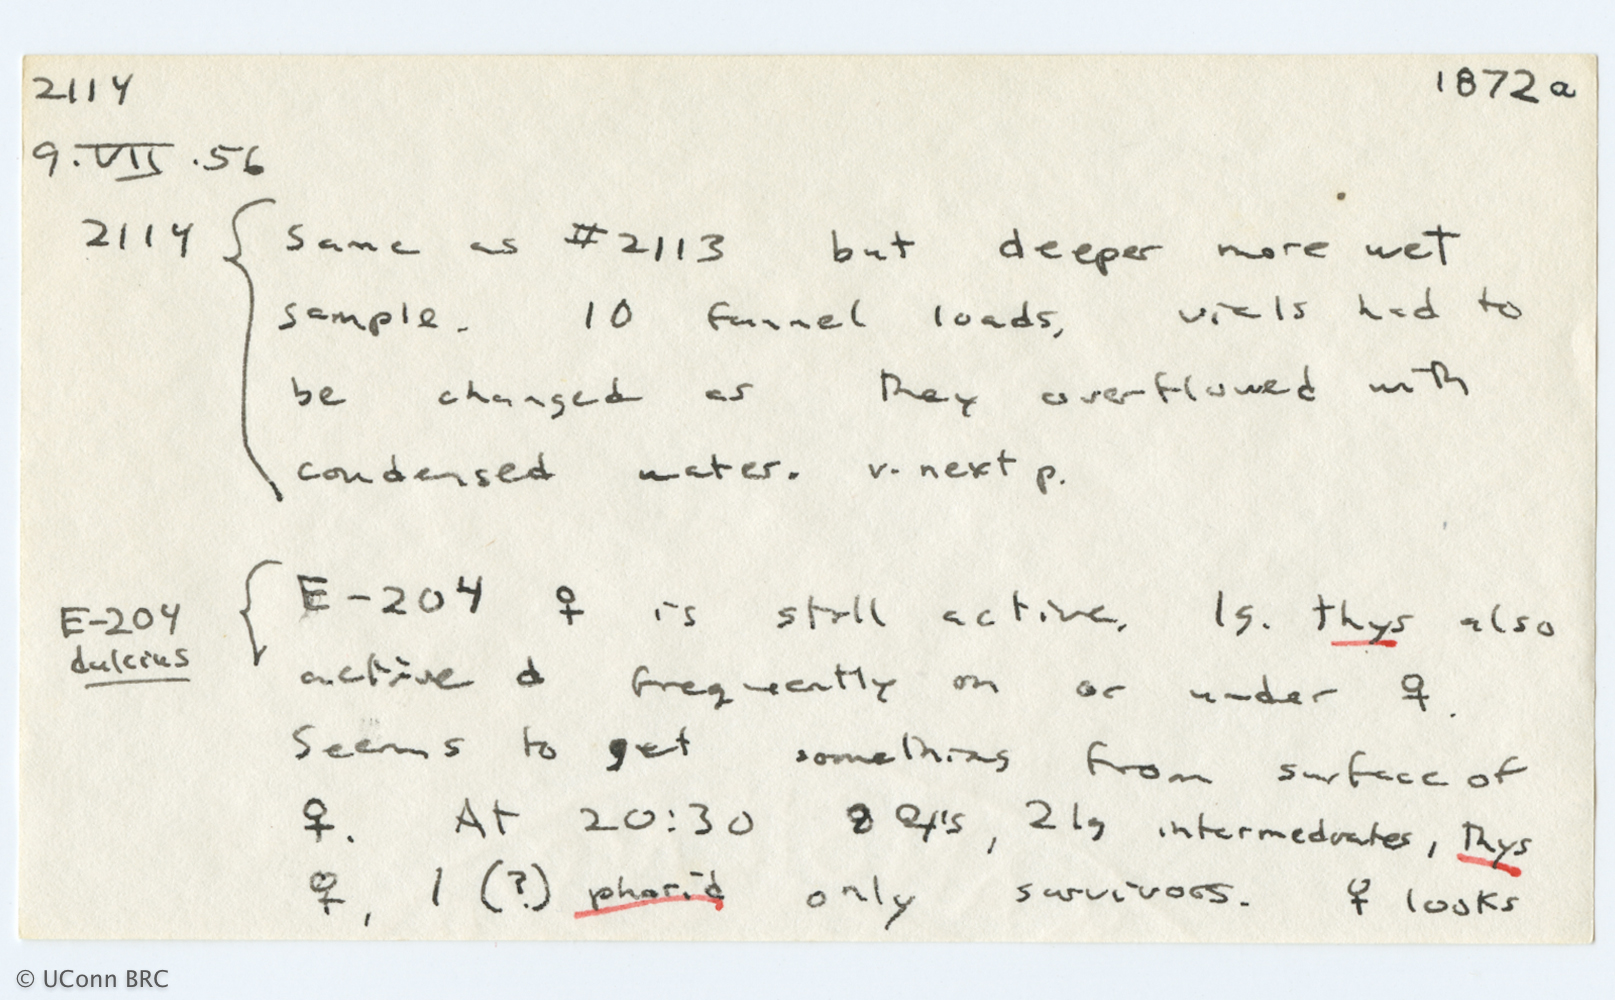 2114 1872a
9.VII.56
2114 { Same as #2113 but deeper more wet
sample. 10 funnel loads, vials had to
be changed as they overflowed with
condensed water. v. next p.
E-204 dulcius { E-204 ♀ is still active. lg. thys also
active & frequently on or under ♀.
Seems to get something from surface of
♀. At 20:30 , 2 lg intermediates, thys
♀, 1 (?) phorid only survivors. ♀ looks
© UConn BRC